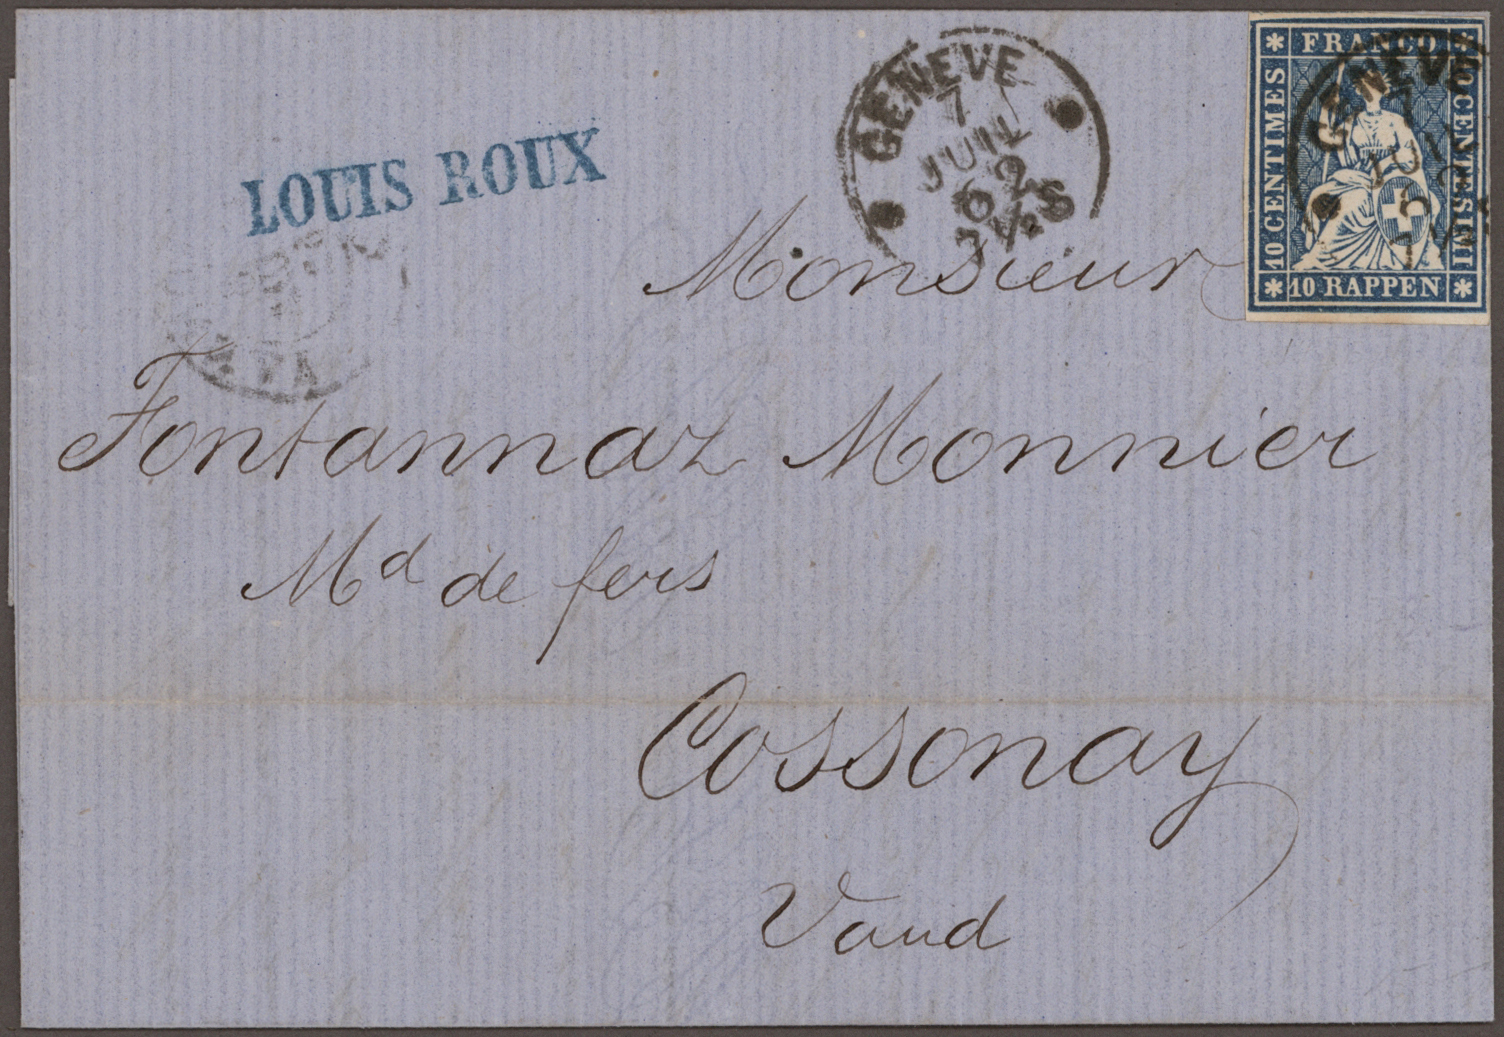 LOUIS ROUX
GENÈVE
7
JUIL
62
FRANCO
10 CENTIMES
CENTESIMI
10 RAPPEN
GENÈVE
7
JUIL
Monsieur
Fontannaz Monnier
Md de fers
Cossonay
Vaud